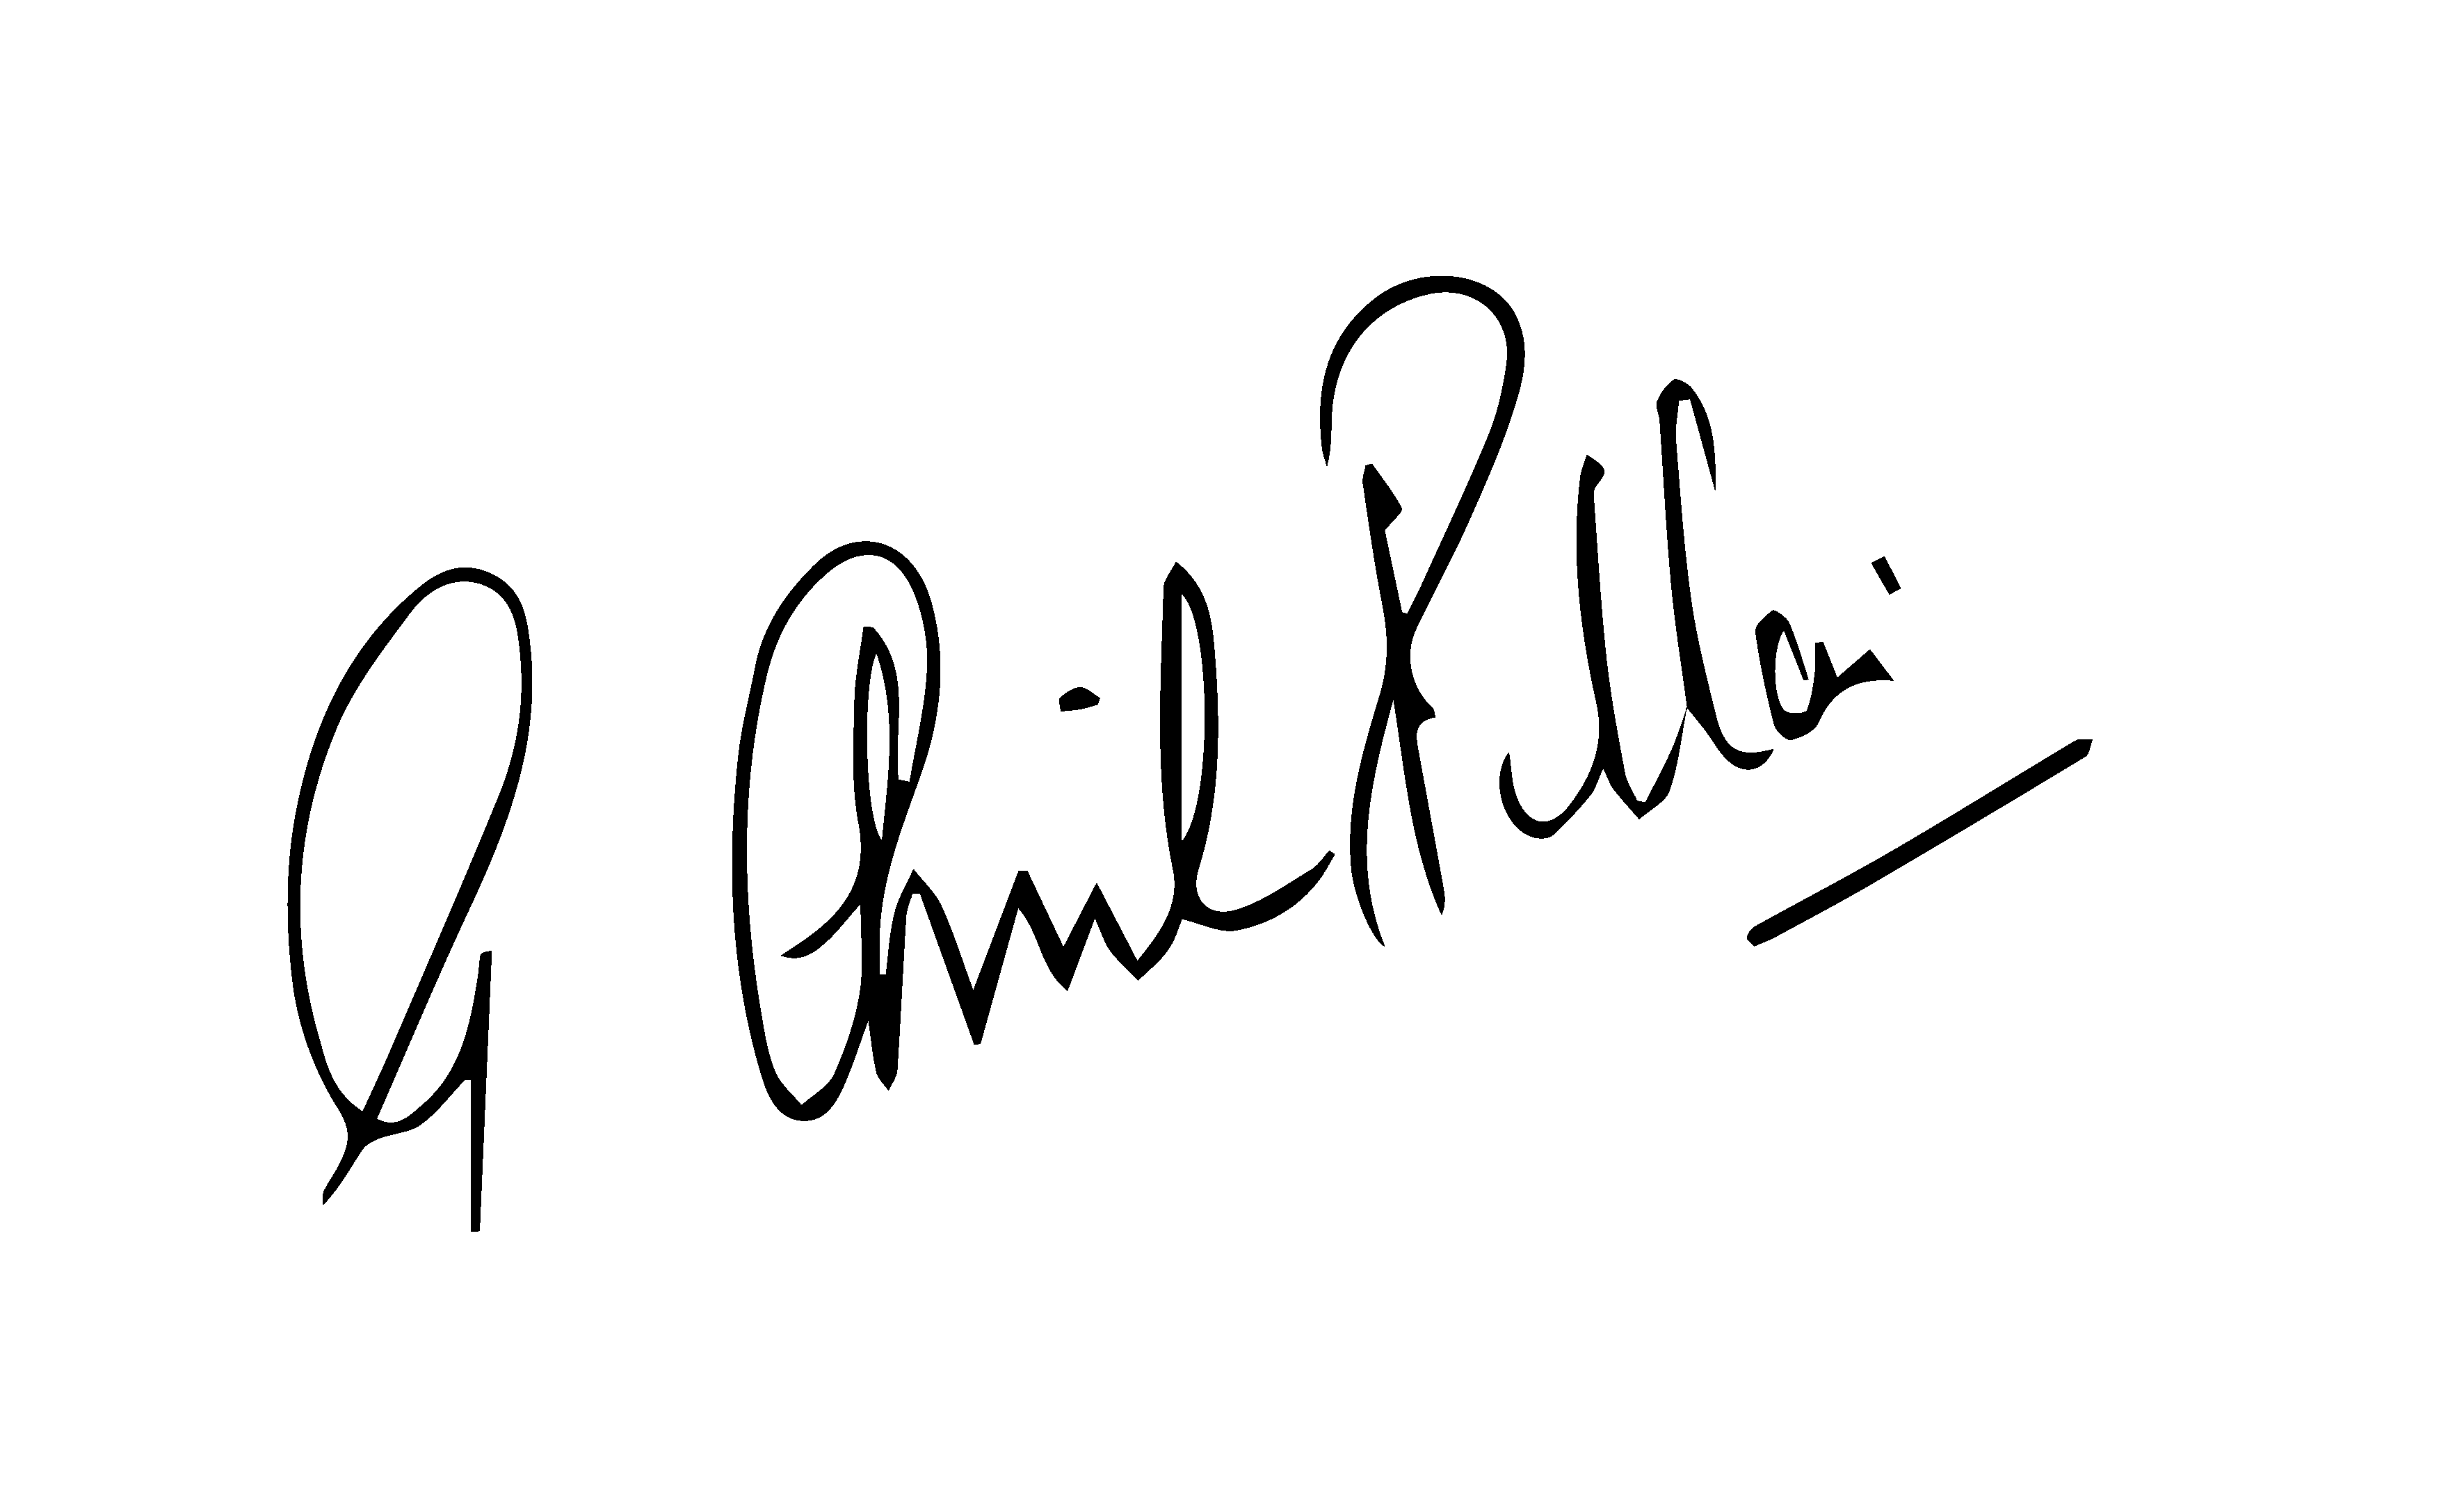 G Anil Pillai